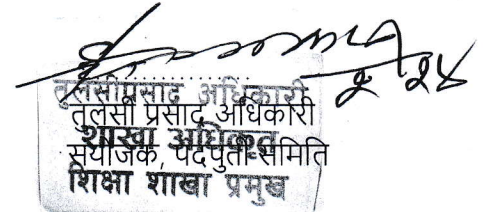 तुलसीप्रसाद अधिकारी
तुलसी प्रसाद अधिकारी
शाखा अधिकृत
संयोजक, पदपुर्ती समिति
शिक्षा शाखा प्रमुख